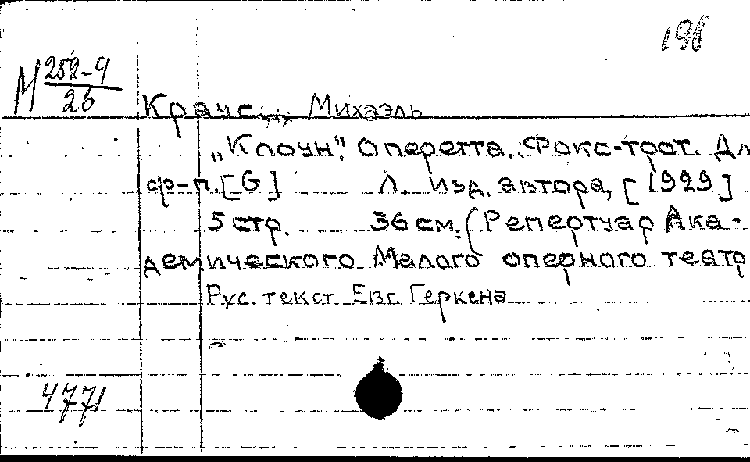 196
М 252-9
26
Краус Михаэль
„Клоун”. Оперетта. Фокс-трот. Дл
ф-п. [G] Л. изд. автора, [1929]
5 стр. 36 см. (Репертуар Ака-
демического Малого оперного театр
Рус. текст Евг. Геркена
4771